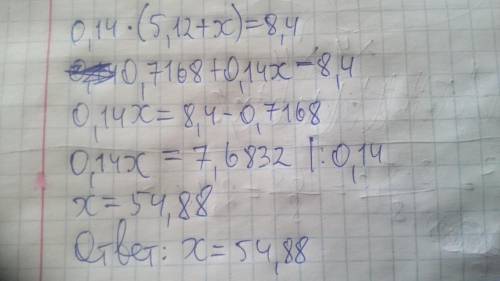 0,14 · (5,12+x)=8,4
0,7168+0,14x=8,4
0,14x=8,4-0,7168
0,14x=7,6832 |:0,14
x=54,88
Ответ: x=54,88